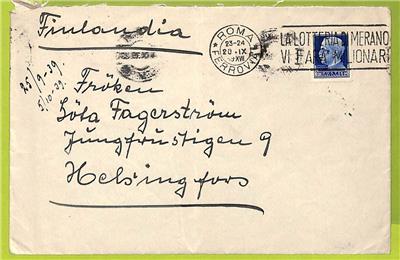 Finlandia
ROMA
FERROVIA
23-24
20 • IX
XVII
LA LOTTERIA DI MERANO
VI FARÀ MILIONARI
25/9-39
5/10-39.
Fröken
Göta Fagerström
Jungfrustigen 9
Helsingfors